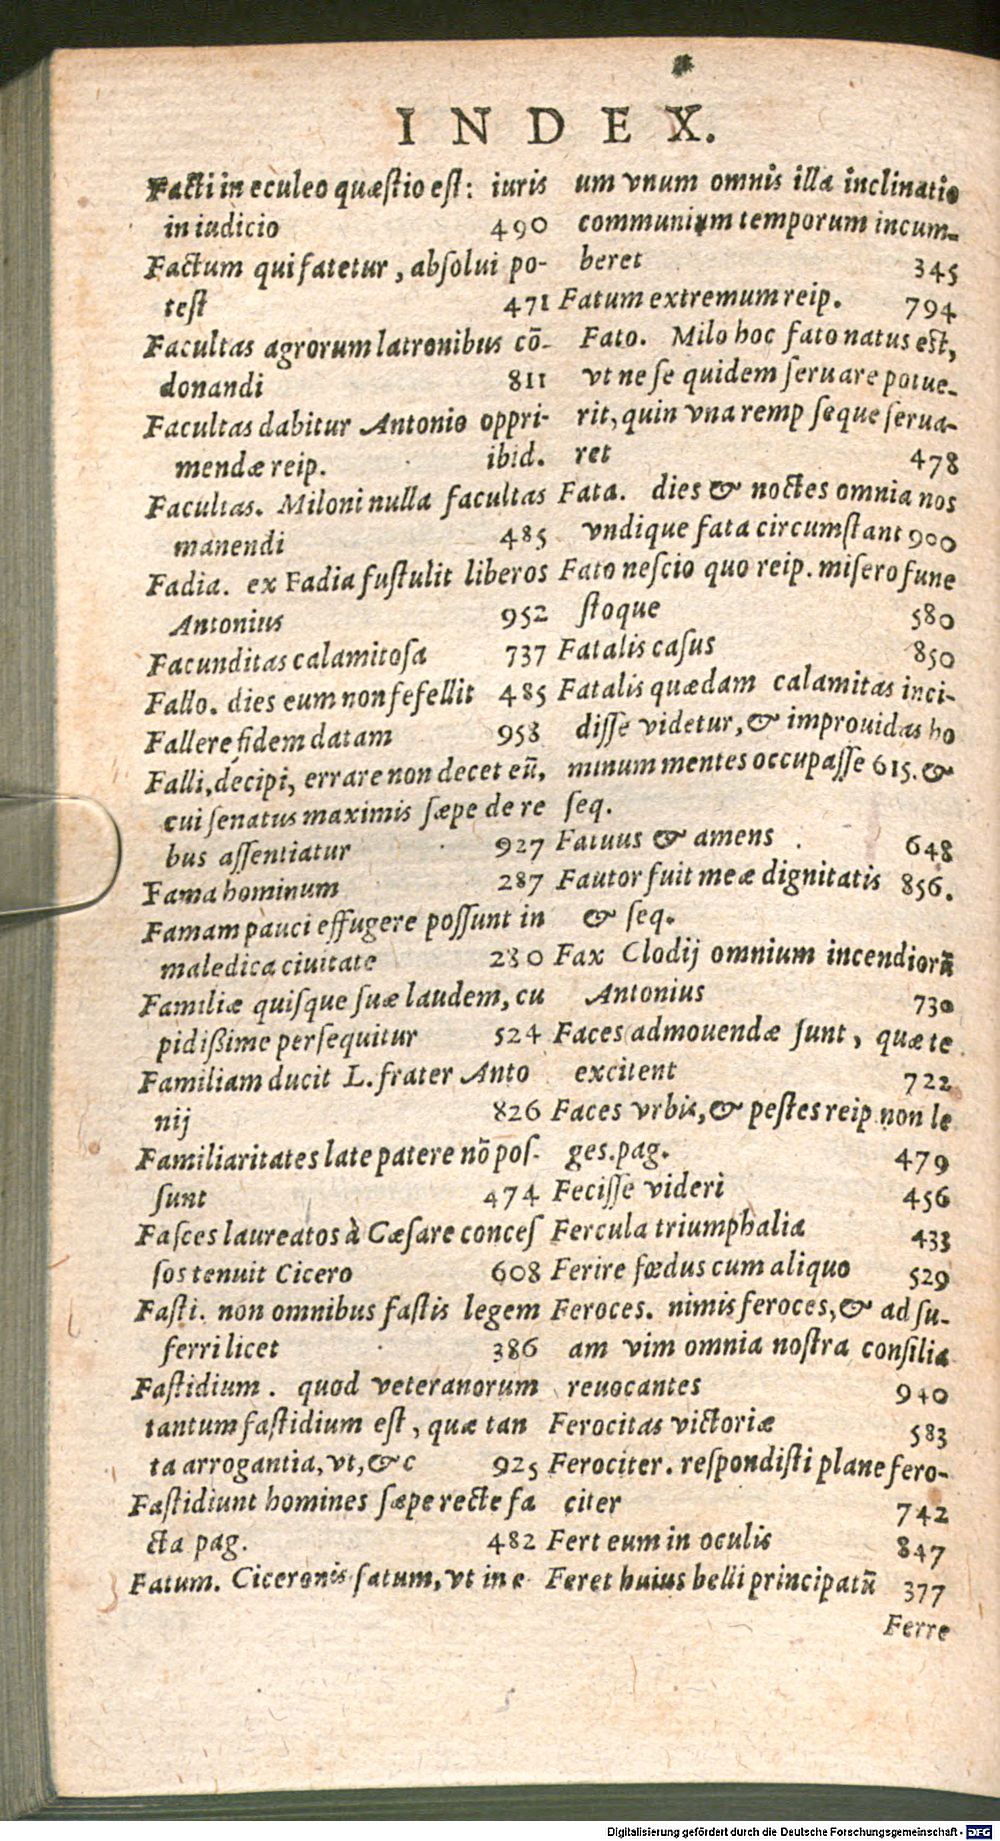 INDEX.
Facti in eculeo quæſtio eſt: iuris
in iudicio 490
Factum qui fatetur, abſolui po-
teſt 471
Facultas agrorum latronibus cō-
donandi 811
Facultas dabitur Antonio oppri-
mendæ reip. ibid.
Facultas. Miloni nulla facultas
manendi 485
Fadia. ex Fadia ſuſtulit liberos
Antonius 952
Facunditas calamitoſa 737
Fallo. dies eum non fefellit 485
Fallere fidem datam 958
Falli, decipi, errare non decet eū,
cui ſenatus maximis ſæpe de re
bus aſſentiatur 927
Fama hominum 287
Famam pauci effugere poſſunt in
maledica ciuitate 280
Familiæ quiſque ſuæ laudem, cu
pidißime perſequitur 524
Familiam ducit L. frater Anto
nij 826
Familiaritates late patere nō poſ-
ſunt 474
Faſces laureatos à Cæſare conceſ
ſos tenuit Cicero 608
Faſti. non omnibus faſtis legem
ferri licet 386
Faſtidium. quod veteranorum
tantum faſtidium eſt, quæ tan
ta arrogantia, vt, &c 925
Faſtidiunt homines ſæpe recte fa
cta pag. 482
Fatum. Ciceronis fatum, vt in e
um vnum omnis illa inclinatio
communium temporum incum-
beret 345
Fatum extremum reip. 794
Fato. Milo hoc fato natus eſt,
vt ne ſe quidem ſeruare potue-
rit, quin vna remp ſeque ſerua-
ret 478
Fata. dies & noctes omnia nos
vndique fata circumſtant 900
Fato neſcio quo reip. miſero fune
ſtoque 580
Fatalis caſus 850
Fatalis quædam calamitas inci-
diſſe videtur, & improuidas ho
minum mentes occupaſſe 615. &
ſeq.
Fatuus & amens 648
Fautor fuit meæ dignitatis 856.
& ſeq.
Fax Clodij omnium incendiorū
Antonius 730
Faces admouendæ ſunt, quæ te
excitent 722
Faces vrbis, & peſtes reip non le
ges. pag. 479
Feciſſe videri 456
Fercula triumphalia 433
Ferire fœdus cum aliquo 529
Feroces. nimis feroces, & ad ſu-
am vim omnia noſtra conſilia
reuocantes 940
Ferocitas victoriæ 583
Ferociter. reſpondiſti plane fero-
citer 742
Fert eum in oculis 847
Feret huius belli principatū 377
Ferre
Digitalisierung gefördert durch die Deutsche Forschungsgemeinschaft - DFG